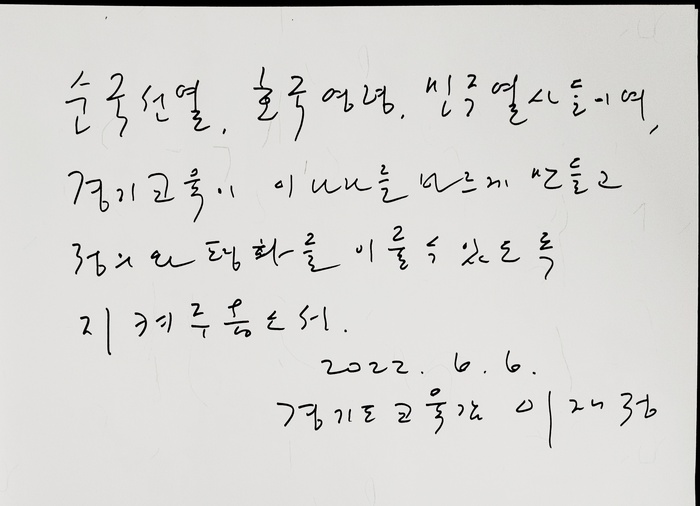 순국선열, 호국영령, 민주열사들이여,
경기교육이 이 나라를 바르게 만들고
정의와 평화를 이룰 수 있도록
지켜주옵소서.
2022. 6. 6.
경기도교육감 이재정